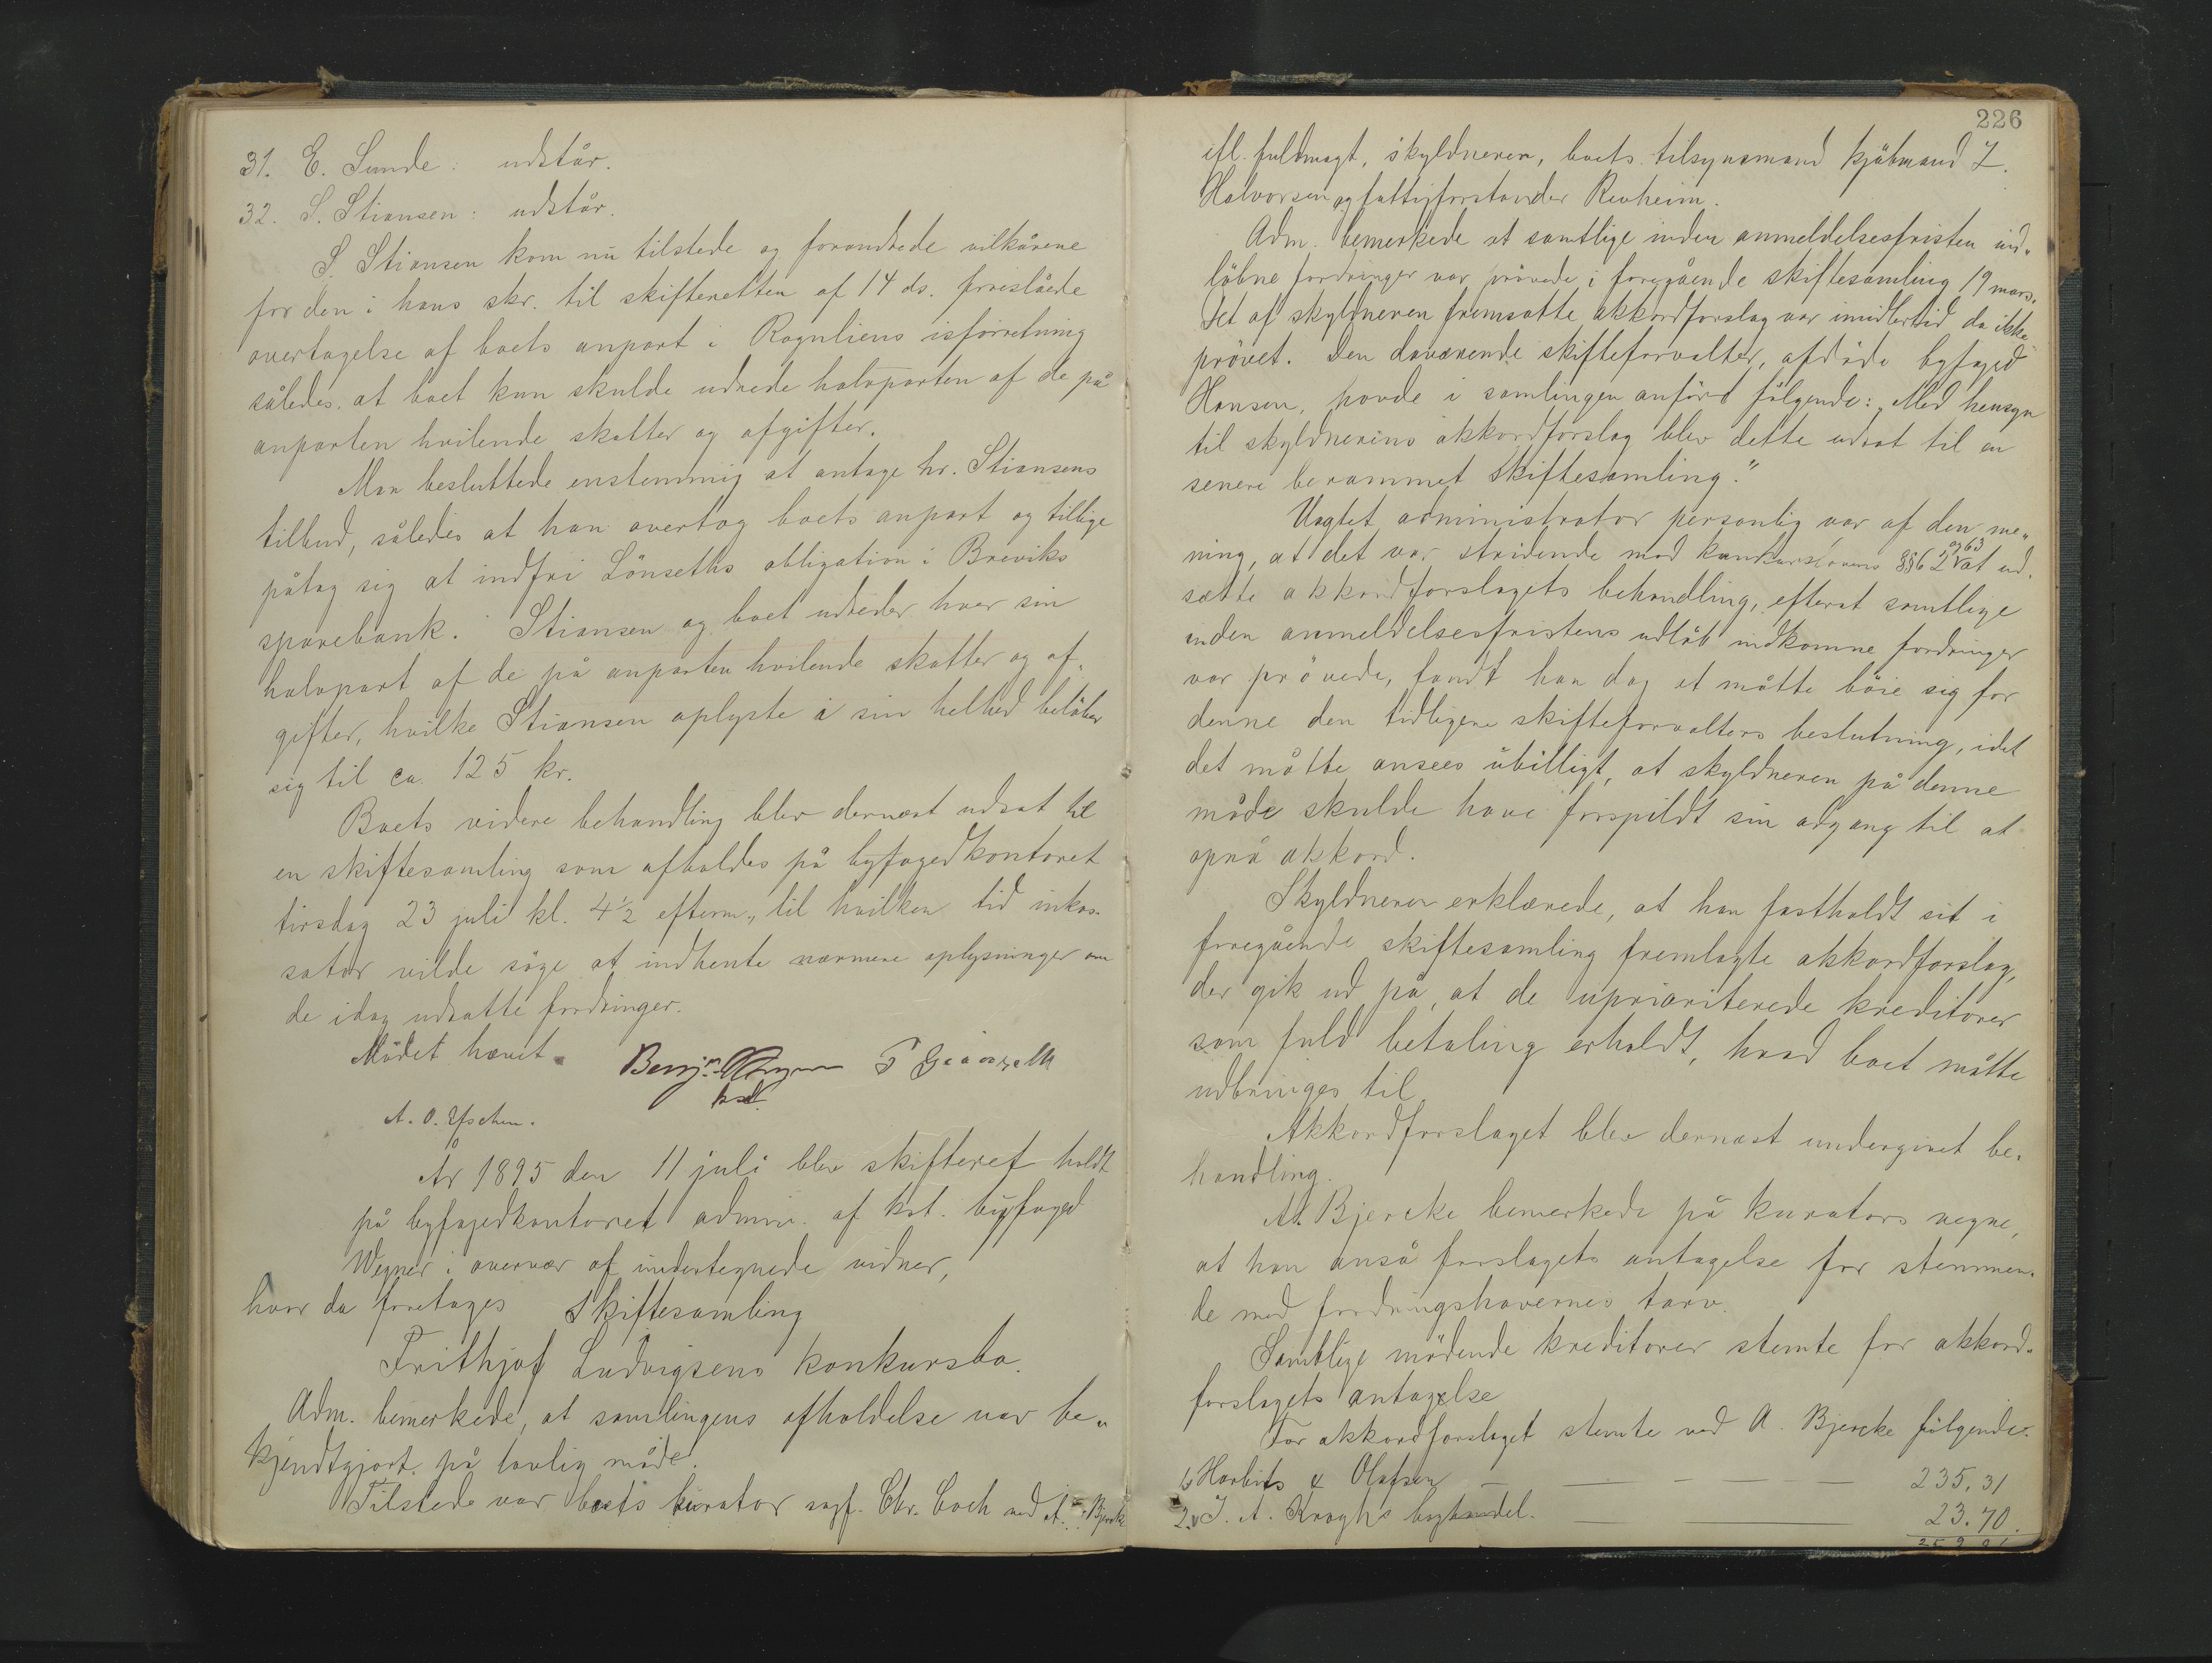 31. E. Sunde: udstår.
32. S. Stiansen: udstår.
S. Stiansen kom nu tilstede og forandrede vilkårene
for den i hans skr. til skifteretten af 14 ds. foreslåede
overtagelse af boets anpart i Rognliens isforretning
således, at boet kun skulde udrede halvparten af de på
anparten hvilende skatter og afgifter.
Man besluttede enstemmig at antage hr. Stiansens
tilbud, således at han overtog boets anpart og tillige
påtog sig at indfri Lönseths obligation i Breviks
sparebank. Stiansen og boet udreder hver sin
halvpart af de på anparten hvilende skatter og af-
gifter, hvilke Stiansen oplyste i sin helhed belöber
sig til ca. 125 kr.
Boets videre behandling blev dernæst udsat til
en skiftesamling som afholdes på byfogedkontoret
tirsdag 23 juli kl. 4½ efterm., til hvilken tid inkas-
sator vilde söge at indhente nærmere oplysninger om
de idag udsatte fordringer.
Mödet hævet.
Benj.
kst.
A. O.
År 1895 den 11 juli blev skifteret holdt
på byfogedkontoret admin. af kst. byfoged
Wegner i overvær af undertegnede vidner,
hvor da foretages Skiftesamling
Frithjof Ludvigsens konkursbo.
Adm. bemerkede, at samlingens afholdelse var be-
kjendtgjort på lovlig måde.
Tilstede var boets kurator sagf. Chr. Coch ved A. Bjercke
226
ifl. fuldmagt, skyldneren, boets tilsynsmand kjöbmand L.
Halvorsen og fattigforstander Revheim.
Adm. bemerkede at samtlige inden anmeldelsesfristen ind-
löbne fordringer var prövede i foregående skiftesamling 19 mars.
Det af skyldneren fremsatte akkordforslag var imidlertid da ikke
prövet. Den daværende skifteforvalter, afdöde byfoged
Hansen, havde i samlingen anfört fölgende: „Med hensyn
til skyldnerens akkordforslag blev dette udsat til en
senere berammet skiftesamling."
Uagtet administrator personlig var af den me-
ning, at det var stridende mod konkurslovens §§ 62 og 63 at ud-
sætte akkordforslagets behandling, efterat samtlige
inden anmeldelsesfristens udlöb indkomne fordringer
var prövede, fandt han dog at måtte böie sig for
denne den tidligere skifteforvalters beslutning, idet
det måtte ansees ubilligt, at skyldneren på denne
måde skulde have forspildt sin adgang til at
opnå akkord.
Skyldneren erklærede, at han fastholdt sit i
foregående skiftesamling fremlagte akkordforslag,
der gik ud på, at de uprioriterede kreditorer
som fuld betaling erholdt, hvad boet måtte
udbringes til.
Akkordforslaget blev dernæst undergivet be-
handling.
A. Bjercke bemerkede på kurators vegne,
at han anså forslagets antagelse for stemmen-
de med fordringshavernes tarv.
Samtlige mödende kreditorer stemte for akkord-
forslagets antagelse
For akkordforslaget stemte ved A. Bjercke fölgende:
1. Harbitz & Olafsen 235,31
2. J. A. Kroghs boghandel. 23.70.
259 01